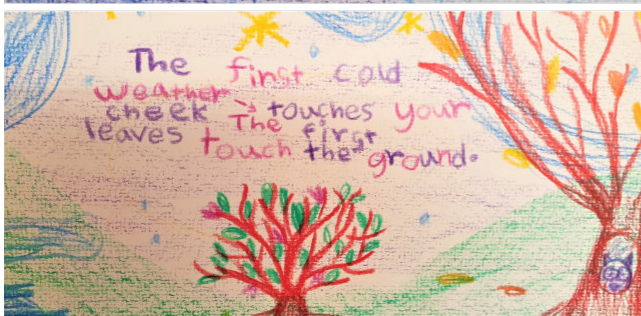 The first cold
weather touches your
cheek The first
leaves touch the ground.